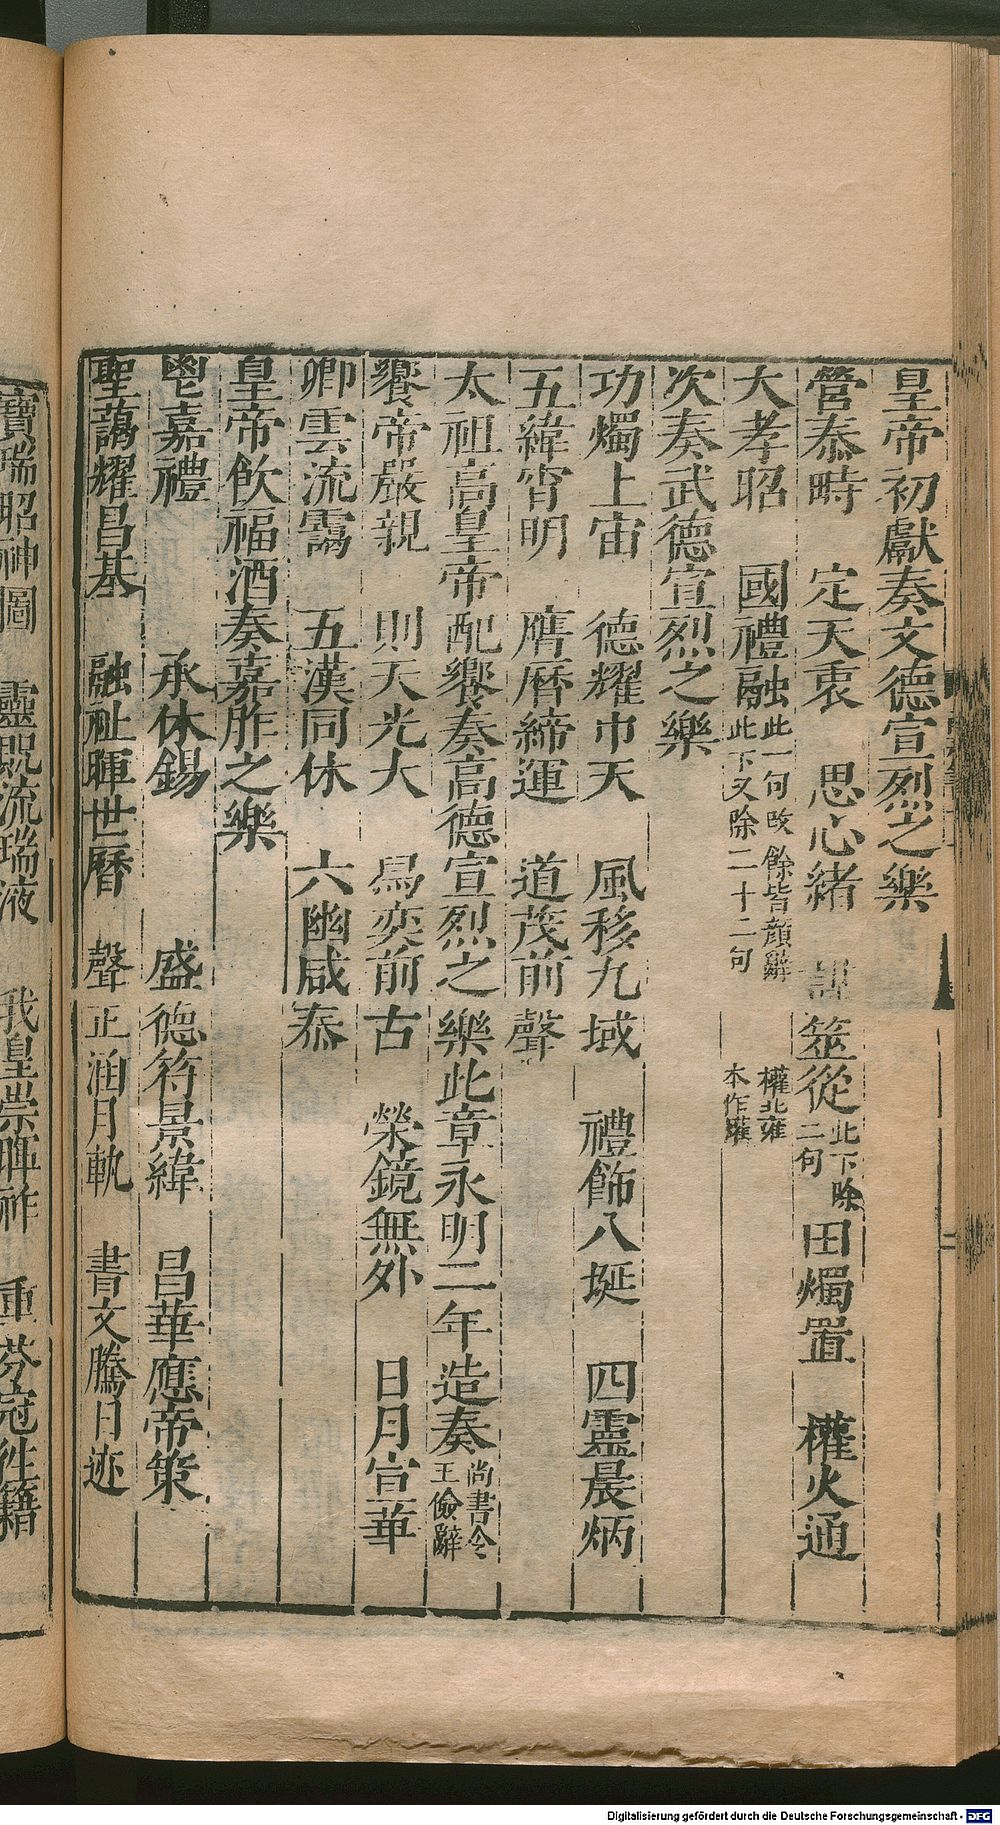 皇帝初獻奏文德宣烈之樂
營泰畤　定天衷　思心緒　謀筮從此下除二句　田燭置　權火通
大孝昭　國禮融此一句改餘皆顔辭此下又除二十二句　權北雍本作爟
次奏武德宣烈之樂
功燭上宙　德耀巾天　風移九域　禮飾八埏　四靈晨炳
五緯宵明　膺曆締運　道茂前聲
太祖高皇帝配饗奏高德宣烈之樂此章永明二年造奏尚書令王儉辭
饗帝嚴親　則天光大　舄奕前古　榮鏡無外　日月宣華
卿雲流靄　五漢同休　六幽咸泰
皇帝飲福酒奏嘉胙之樂
鬯嘉禮　承休錫　盛德符景緯　昌華應帝策
聖藹耀昌基　融祉暉世曆　聲正涵月軌　書文騰日迹
寶瑞昭神圖　靈貺流瑞液　我皇崇暉祚　重芬冠往籍
Digitalisierung gefördert durch die Deutsche Forschungsgemeinschaft - DFG